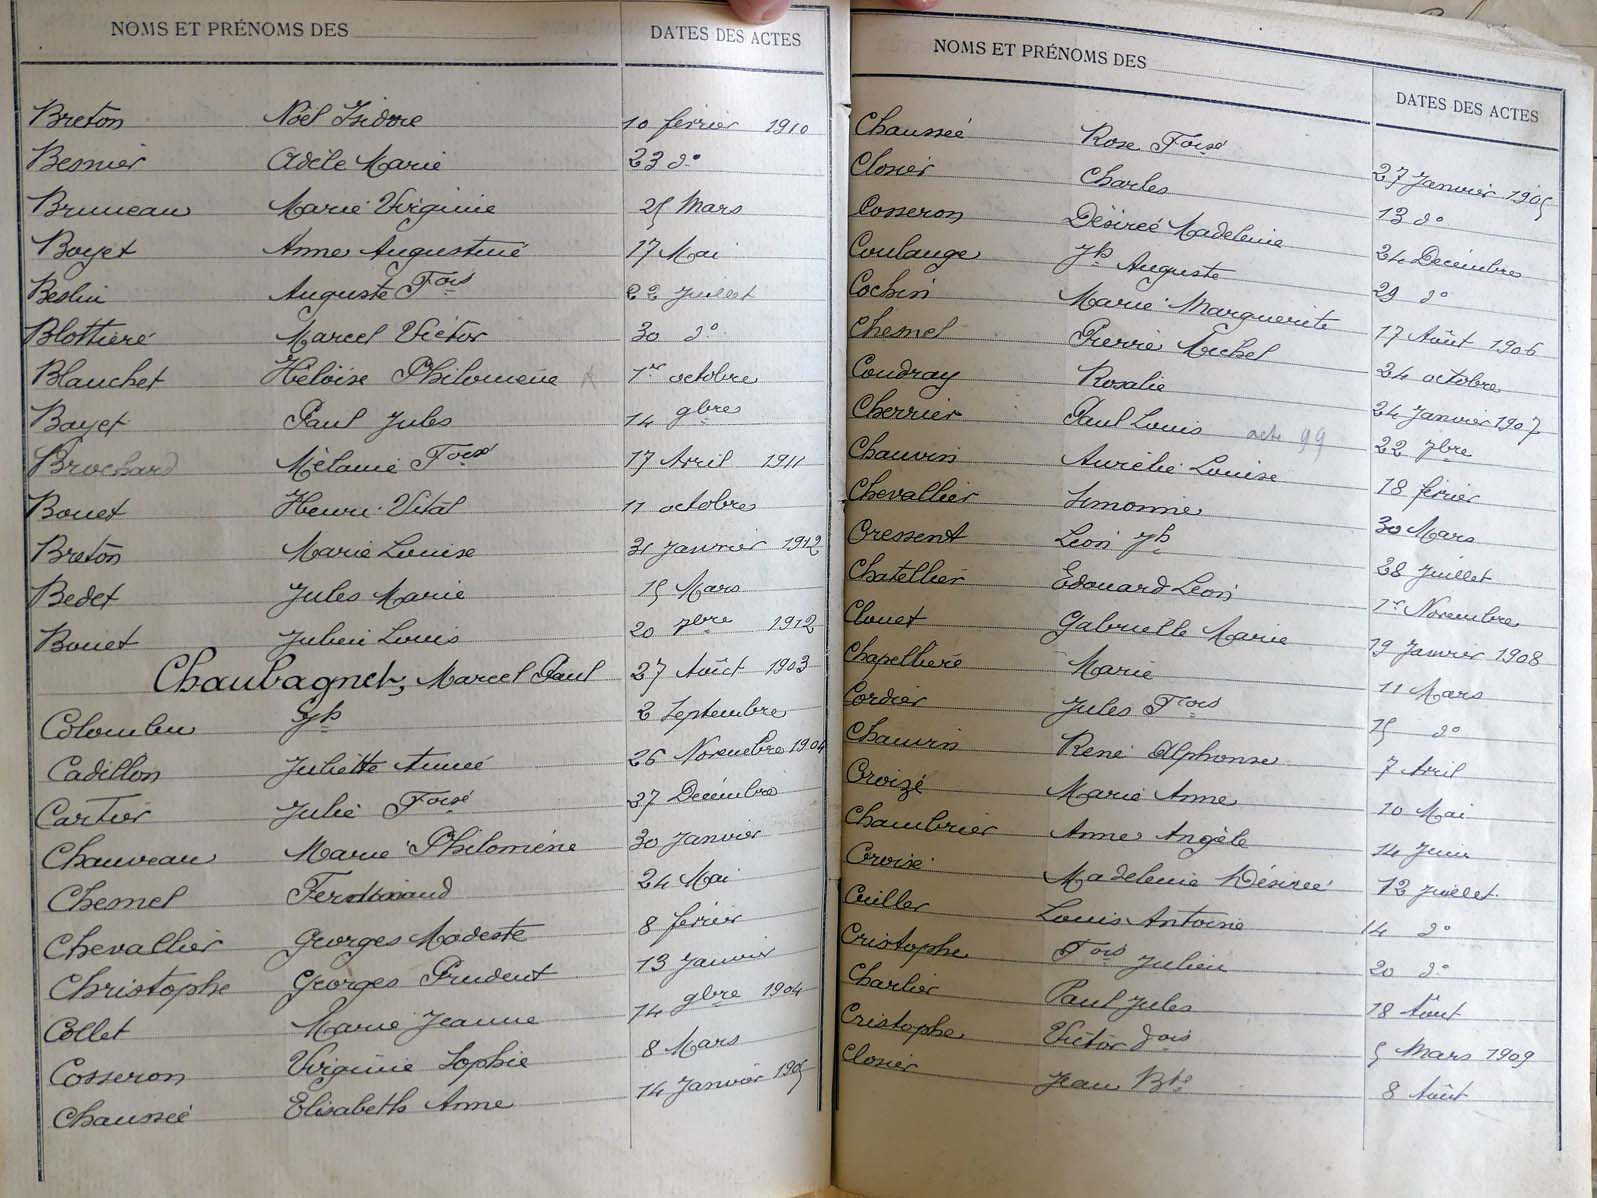 NOMS ET PRÉNOMS DES DATES DES ACTES
Breton Noël Isidore 10 février 1910
Besnier Adèle Marie 23 do
Bruneau Marie Virginie 25 Mars
Boyet Anne Augustine 17 Mai
Beslin Auguste Fois 22 Juillet
Blottière Marcel Victor 30 do
Blanchet Héloïse Philomène 1er octobre
Boyer Paul Jules 14 9bre
Brochard Mélanie Foise 17 Avril 1911
Bouet Henri Vital 11 octobre
Breton Marie Louise 31 Janvier 1912
Bedet Jules Marie 15 Mars
Bouet Julien Louis 20 7bre 1912
Chaubagnet, Marcel Paul 27 Août 1903
Colombeu Jph 2 Septembre
Cadillon Juliette Aimée 26 Novembre 1904
Cartier Julie Foise 27 Décembre
Chauveau Marie Philomène 30 Janvier
Chesnel Ferdinand 24 Mai
Chevallier Georges Modeste 8 février
Christophe Georges Prudent 13 Janvier
Collet Marie Jeanne 14 9bre 1904
Cosseron Virginie Sophie 8 Mars
Chaussée Elisabeth Anne 14 Janvier 1905
NOMS ET PRÉNOMS DES DATES DES ACTES
Chaussée Rose Foise 27 Janvier 1905
Closier Charles 13 do
Cosseron Désirée Madeleine 24 Décembre
Coulange Jph Auguste 29 do
Cochin Marie Marguerite 17 Août 1906
Chesnel Pierre Michel 24 octobre
Coudray Rosalie 24 Janvier 1907
Cherrier Paul Louis acte 99 22 7bre
Chauvin Aurélie Louise 18 février
Chevallier Simonne 30 Mars
Cressent Léon Jph 28 Juillet
Chatellier Edouard Léon 1er Novembre
Clouet Gabrielle Marie 19 Janvier 1908
Chapellière Marie 11 Mars
Cordier Jules Fois 15 do
Chauvin René Alphonse 7 Avril
Croizé Marie Anne 10 Mai
Chambrier Anne Angèle 14 Juin
Croisé Madeleine Désirée 12 Juillet
Cuiller Louis Antoine 14 do
Cristophe Fois Julien 20 do
Charlier Paul Jules 18 Août
Cristophe Victor Fois 5 Mars 1909
Closier Jean Bte 8 Août